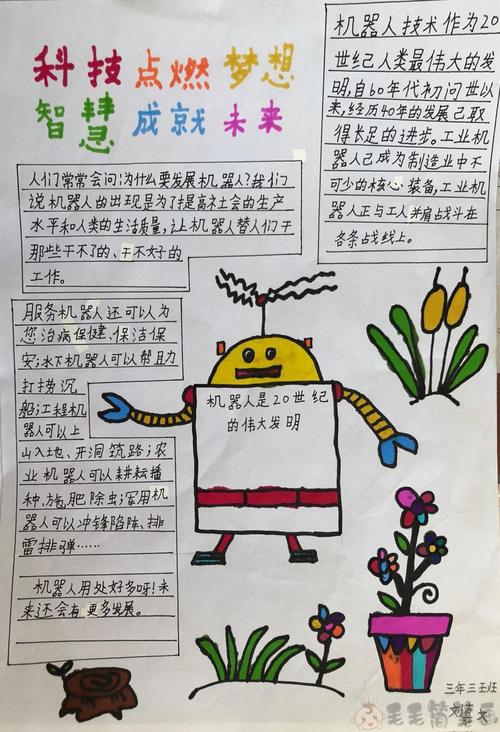 科技点燃梦想
智慧成就未来
机器人技术作为20
世纪人类最伟大的发
明,自60年代初问世以
来,经历40年的发展已取
得长足的进步。工业机
器人已成为制造业中不
可少的核心装备,工业机
器人正与工人并肩战斗在
各条战线上。
人们常常会问:为什么要发展机器人?我们
说机器人的出现是为了提高社会的生产
水平和人类的生活质量,让机器人替人们干
那些干不了的、干不好的
工作。
服务机器人还可以为
您治病保健、保洁保
安;水下机器人可以帮且力
打捞沉
船;工程机
器人可以上
山入土地、开洞筑路;农
业机器人可以耕耘播
种,施肥除虫;军用机
器人可以冲锋陷阵、排
雷排弹……
机器人用处好多呀!未
来还会有更多发展。
机器人是20世纪
的伟大发明
三年三班
毛毛简笔画